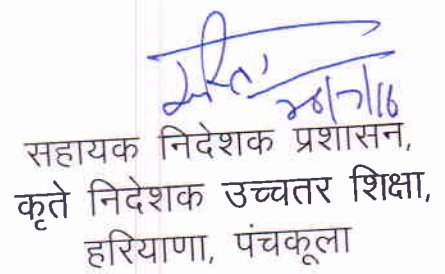 सहायक निदेशक प्रशासन,
कृते निदेशक उच्चतर शिक्षा,
हरियाणा, पंचकूला